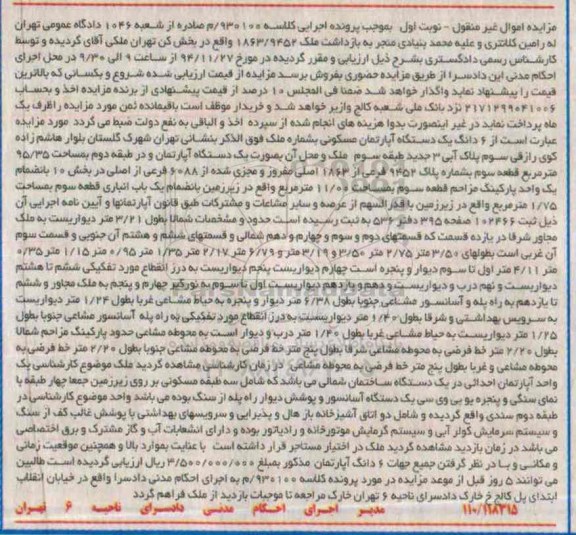 مزایده اموال غیر منقول - نوبت اول بموجب پرونده اجرایی کلاسه ۹۳۰۱۰۰/م صادره از شعبه ۱۰۴۶ دادگاه عمومی تهران
له رامین کلانتری و علیه محمد بنیادی منجر به بازداشت ملک ۱۸۶۳/۹۴۵۲ واقع در بخش کن تهران ملکی آقای گردیده و توسط
کارشناس رسمی دادگستری بشرح ذیل ارزیابی و مقرر گردیده در مورخ ۹۴/۱۱/۲۷ از ساعت ۹ الی ۹/۳۰ در محل اجرای
احکام مدنی این دادسرا از طریق مزایده حضوری بفروش برسد مزایده از قیمت ارزیابی شده شروع و بکسانی که بالاترین
قیمت را پیشنهاد نماید واگذار خواهد شد ضمنا فی المجلس ۱۰ درصد از قیمت پیشنهادی از برنده مزایده اخذ و بحساب
۲۱۷۱۲۹۹۰۴۱۰۰۶ نزد بانک ملی شعبه کالج واریز خواهد شد و خریدار موظف است باقیمانده ثمن مورد مزایده را ظرف یک
ماه پرداخت نماید در غیر اینصورت بدوا هزینه های انجام شده از سپرده اخذ و الباقی به نفع دولت ضبط می گردد مورد مزایده
عبارت است از ۶ دانگ یک دستگاه آپارتمان مسکونی بشماره ملک فوق الذکر بنشانی تهران شهرک گلستان بلوار هاشم زاده
کوی رازقی سوم پلاک آبی ۳ جدید طبقه سوم ملک و محل آن بصورت یک دستگاه آپارتمان و در طبقه دوم بمساحت ۹۵/۳۵
مترمربع قطعه سوم بشماره پلاک ۹۴۵۲ فرعی از ۱۸۶۳ اصلی مفروز و مجزی شده از ۶۰۸۸ فرعی از اصلی در بخش ۱۰ بانضمام
یک واحد پارکینگ مزاحم قطعه سوم بمساحت ۱۱/۰۰ مترمربع واقع در زیرزمین بانضمام یک باب انباری قطعه سوم بمساحت
۱/۷۵ مترمربع واقع در زیرزمین با قدرالسهم از عرصه و سایر مشاعات و مشترکات طبق قانون آپارتمانها و آیین نامه اجرایی آن
ذیل ثبت ۱۰۲۴۶۶ صفحه ۳۹۵ دفتر ۵۳۶ به ثبت رسیده است حدود و مشخصات شمالا بطول ۳/۲۱ متر دیواریست به ملک
مجاور شرقا در یازده قسمت که قسمتهای دوم و سوم و چهارم و دهم شمالی و قسمتهای ششم و هشتم آن جنوبی و قسمت سوم
آن غربی است بطولهای ۳/۵۰ متر ۲/۷۵ متر ۳/۵۰ و ۳/۱۹ متر و ۶/۷۹ متر ۲/۱۷ متر ۱/۳۵ متر ۰/۹۵ متر ۱/۱۵ متر ۰/۳۵
متر ۴/۱۱ متر اول تا سوم دیوار و پنجره است چهارم دیواریست پنجم دیواریست به درز انقطاع مورد تفکیکی ششم تا هشتم
دیواریست و نهم درب و دیواریست و دهم و یازدهم دیواریست اول تا سوم به نورگیر چهارم و پنجم به ملک مجاور و ششم
تا یازدهم به راه پله و آسانسور مشاعی جنوبا بطول ۶/۳۸ متر دیوار و پنجره به حیاط مشاعی غربا بطول ۱/۲۴ متر دیواریست
به سرویس بهداشتی و شرقا بطول ۱/۴۰ متر دیواریست به درز انقطاع مورد تفکیکی به راه پله آسانسور مشاعی جنوبا بطول
۱/۲۵ متر دیواریست به حیاط مشاعی غربا بطول ۱/۴۰ متر درب و دیوار است به محوطه مشاعی حدود پارکینگ مزاحم شمالا
بطول ۲/۲۰ متر خط فرضی به محوطه مشاعی شرقا بطول پنج متر خط فرضی به محوطه مشاعی جنوبا بطول ۲/۲۰ متر خط فرضی به
محوطه مشاعی و غربا بطول پنج متر خط فرضی به محوطه مشاعی در زمان کارشناسی مشاهده گردید ملک موضوع کارشناسی یک
واحد آپارتمان احداثی در یک دستگاه ساختمان شمالی می باشد که شامل سه طبقه مسکونی بر روی زیرزمین جمعا چهار طبقه با
نمای سنگی و پنجره یو پی وی سی یک دستگاه آسانسور و پوشش دیوار راه پله از سنگ بوده می باشد واحد موضوع کارشناسی در
طبقه دوم سندی واقع گردیده و شامل دو اتاق آشپزخانه باز هال و پذیرایی و سرویسهای بهداشتی با پوشش غالب کف از سنگ
و سیستم سرمایش کولر آبی و سیستم گرمایش موتورخانه و رادیاتور بوده و دارای انشعابات آب و گاز مشترک و برق اختصاصی
می باشد در زمان بازدید مشاهده گردید ملک در اختیار مستاجر قرار داشته است با عنایت بموارد بالا و همچنین موقعیت زمانی
و مکانی و با در نظر گرفتن جمیع جهات ۶ دانگ آپارتمان مذکور بمبلغ ۳/۵۰۰/۰۰۰/۰۰۰ ریال ارزیابی گردیده است طالبین
می توانند ۵ روز قبل از موعد مزایده در مورد پرونده کلاسه ۹۳۰۱۰۰/م به اجرای احکام مدنی دادسرا واقع در خیابان انقلاب
ابتدای پل کالج خ خارک دادسرای ناحیه ۶ تهران خارک مراجعه تا موجبات بازدید از ملک فراهم گردد
۱۱۰/۱۱۸۳۱۵ مدیر اجرای احکام مدنی دادسرای ناحیه ۶ تهران